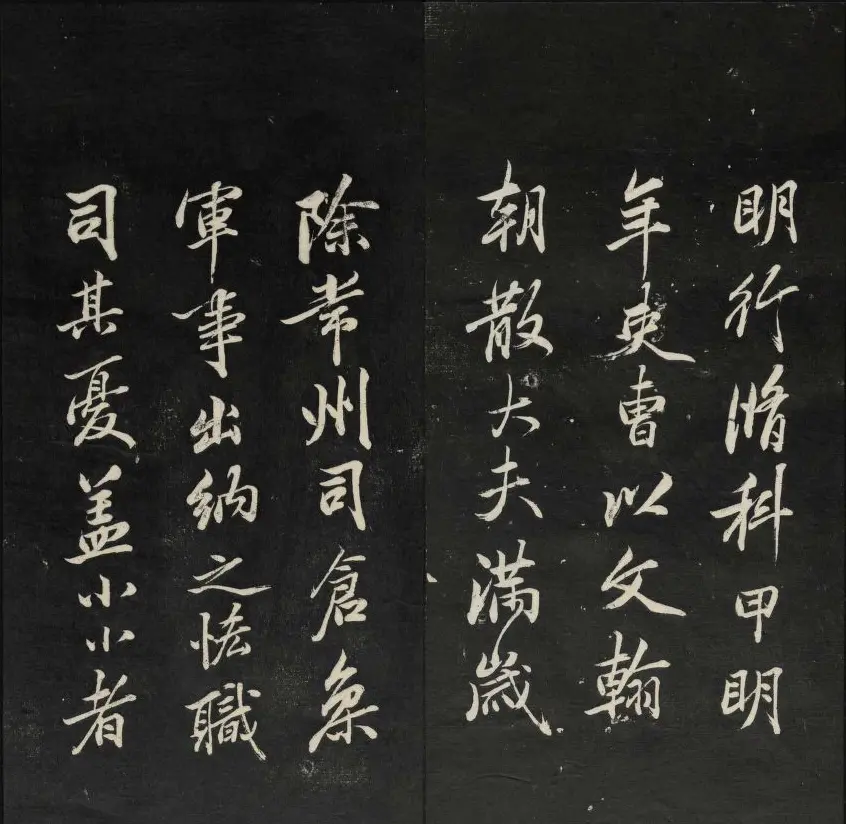 明行脩科甲明
年吏曹以文翰
朝散大夫滿歲
除常州司倉叅
軍事出納之恡職
司其憂盖小小者